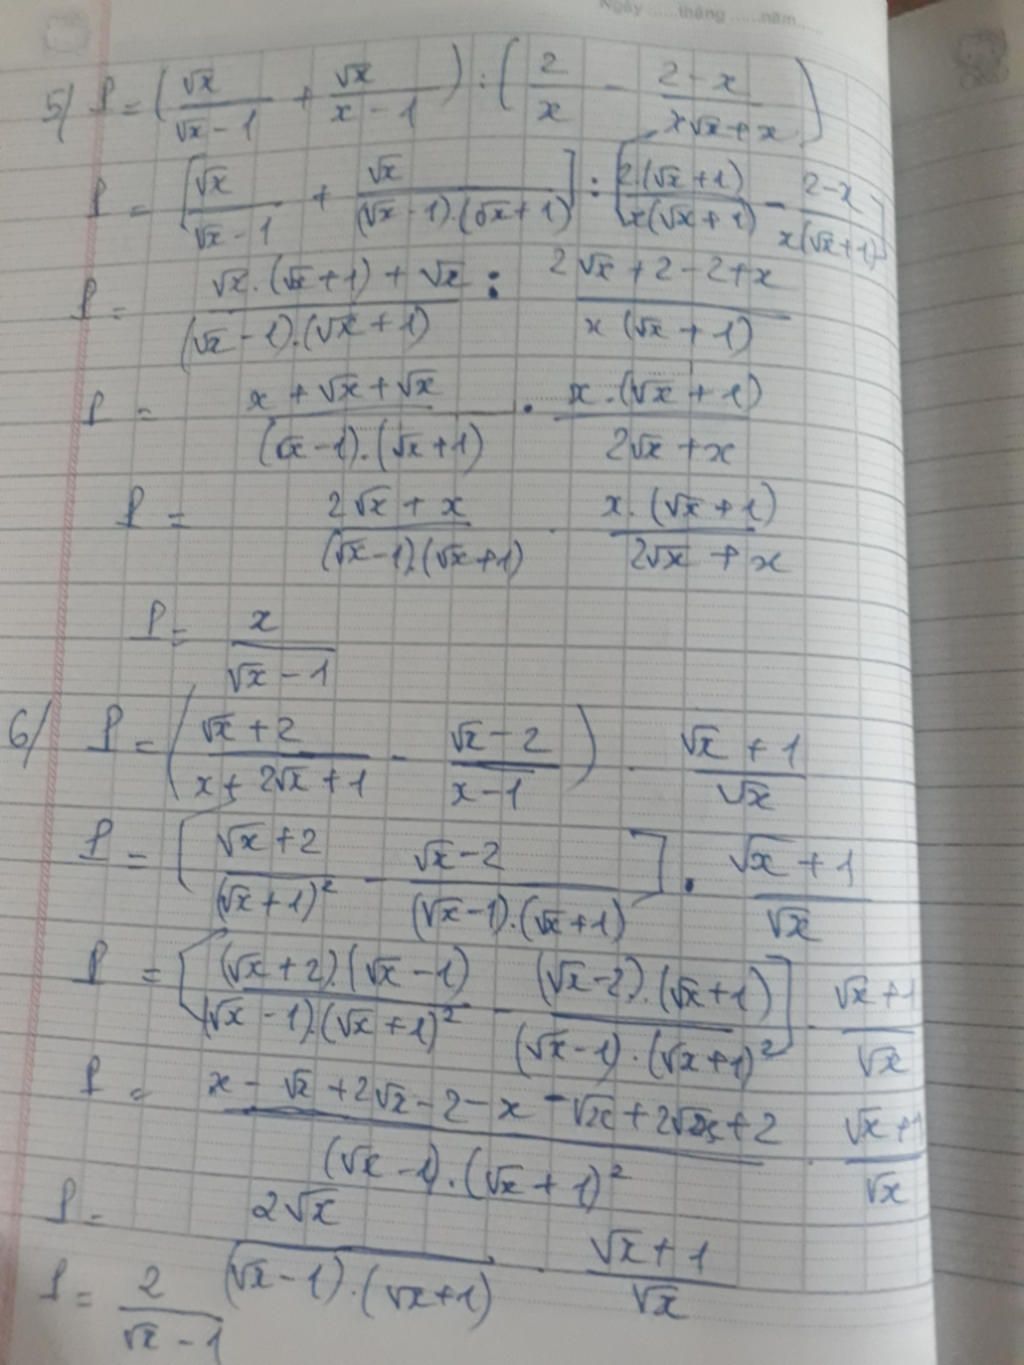 Ngày ......tháng ......năm......
5/ P = (√x/(√x - 1) + √x/(x - 1)) : (2/x - (2 - x)/(x√x + x))
P = [√x/(√x - 1) + √x/((√x - 1).(√x + 1))] : [2.(√x + 1)/(x(√x + 1)) - (2 - x)/(x(√x + 1))]
P = (√x.(√x + 1) + √x)/((√x - 1).(√x + 1)) : (2√x + 2 - 2 + x)/(x(√x + 1))
P = (x + √x + √x)/((√x - 1).(√x + 1)) . (x.(√x + 1))/(2√x + x)
P = (2√x + x)/((√x - 1)(√x + 1)) . (x.(√x + 1))/(2√x + x)
P = x/(√x - 1)
6/ P = ((√x + 2)/(x + 2√x + 1) - (√x - 2)/(x - 1)) . (√x + 1)/√x
P = [(√x + 2)/(√x + 1)² - (√x - 2)/((√x - 1).(√x + 1))] . (√x + 1)/√x
P = [(√x + 2).(√x - 1)/((√x - 1).(√x + 1)²) - (√x - 2).(√x + 1)/((√x - 1).(√x + 1)²)] . (√x + 1)/√x
P = (x - √x + 2√x - 2 - x - √x + 2√x + 2)/((√x - 1).(√x + 1)²) . (√x + 1)/√x
P = 2√x/((√x - 1).(√x + 1)) . (√x + 1)/√x
P = 2/(√x - 1)